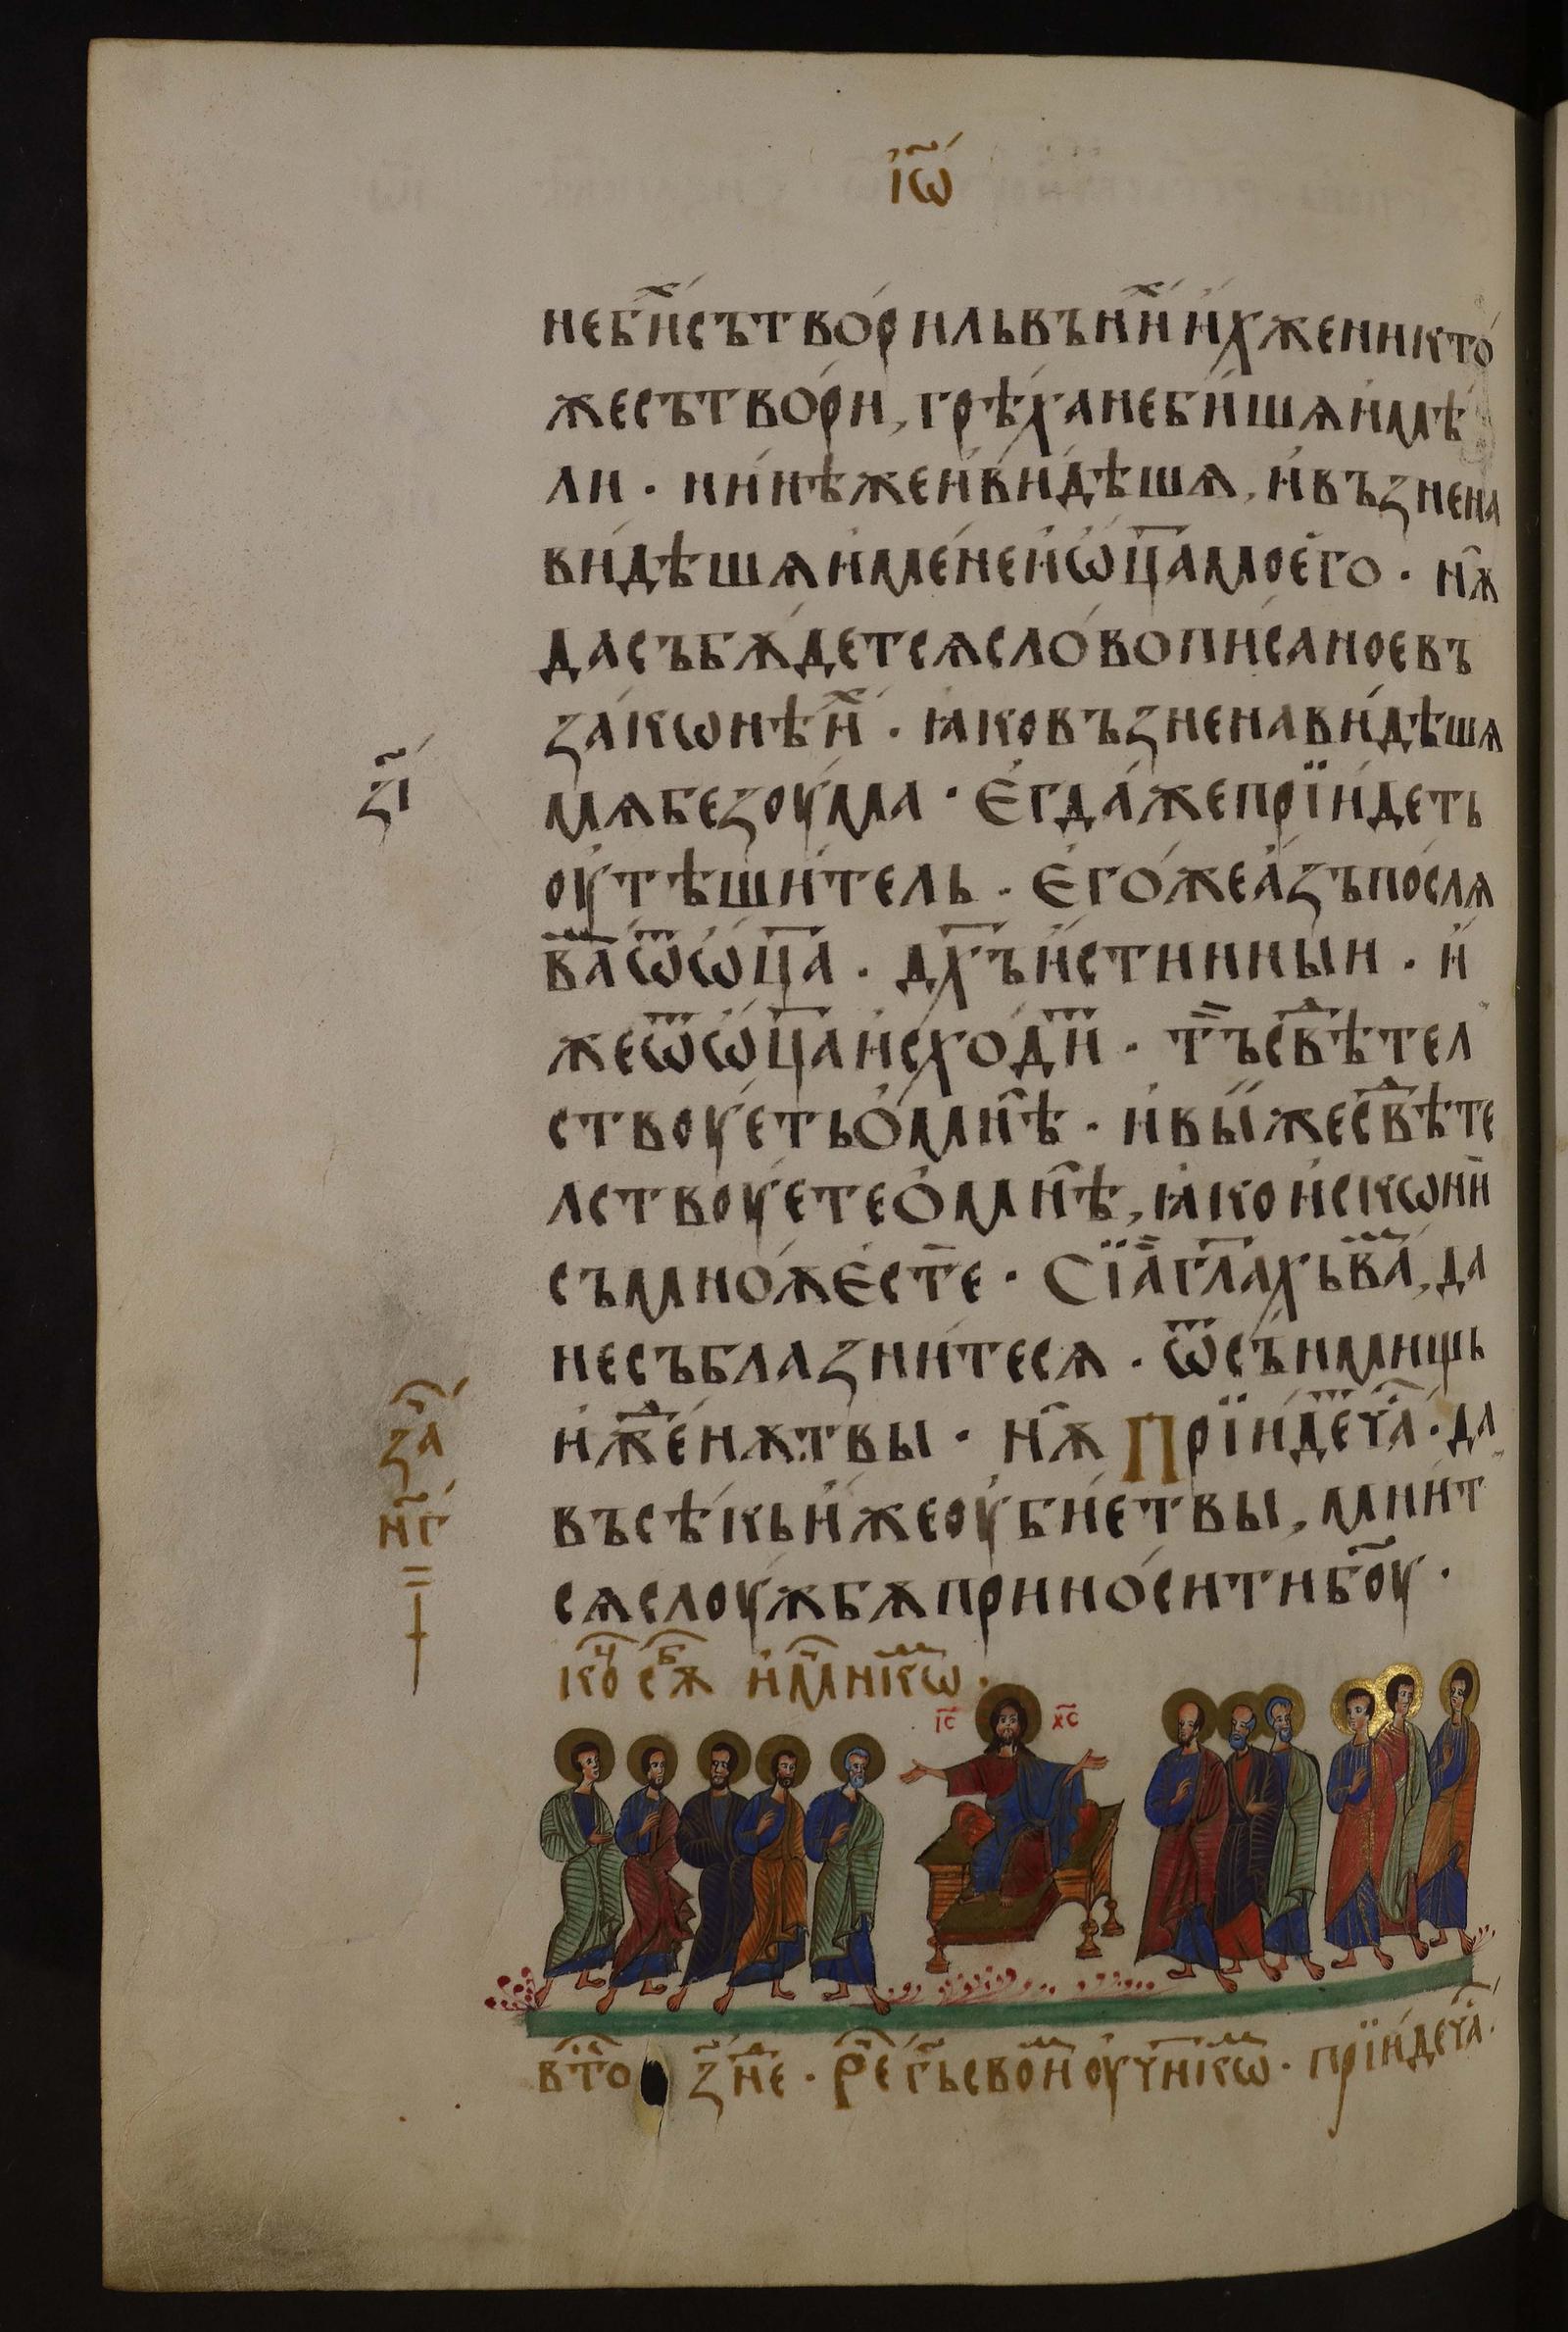 і҆ѡ҃
небⷯи҆сътво́рильвъни́ⷯи҆́хженикто́
жесътво́ри, грѣ́ханеби́шѧи҆мѣ
ли · ни́нѣжеи҆ви́дѣшѧ, и҆възнена
ви́дѣшѧи҆ме́неи҆ѡ҆ц҃амоегѡ̀ · нѫ̑
дасъбѫ́детсѧсло́вопи́саноевъ
за́конѣи́ⷯ · ꙗ҆ковъзненави́дѣшѧ
з҃і
мѧбезоу́ма · Е҆гда́жепрїи́деть
оу҆тѣши́тель · Е҆го́жеа҆́зъпо́слѧ
ва́ⷨѿѡ҆ц҃а · дх҃ъи҆́стинныи · и҆́
жеѿѡ҆ц҃аи҆схо́диⷮ · тъ̏свⷣѣтел
ствоу́етьѻ҆мн̑ѣ · и҆вы́жесвⷣѣте
лствоу́етеѻ҆мн̑ѣ, ꙗ҆кои҆скѡни̏
съмно́ѫе҆сте̏ · Сїа҆̏гл҃ахьва́ⷨ, да
несъблазни́тесѧ · ѿсъ́нмищь
и҆жⷣену́тьвы · нѫ̑ Прїи́деⷮча́ⷭ · да
за́ⷱ҇
н҃г
въсѣ́кьи҆́жеоу҆бїе́твы, мни́т
сѧслоу́жбѫприно́ситиб҃оу ·
коⷰ҇ сѫⷠ҇ и҆мⷩ҇нікѡⷨ ·
і҃с х҃с
втⷪ҇о з҃ нⷣе · Рⷱ҇е гⷭ҇ь своиⷨ оу҆ч҃нікѡⷨ · прїи́деⷮча́ⷭ ·